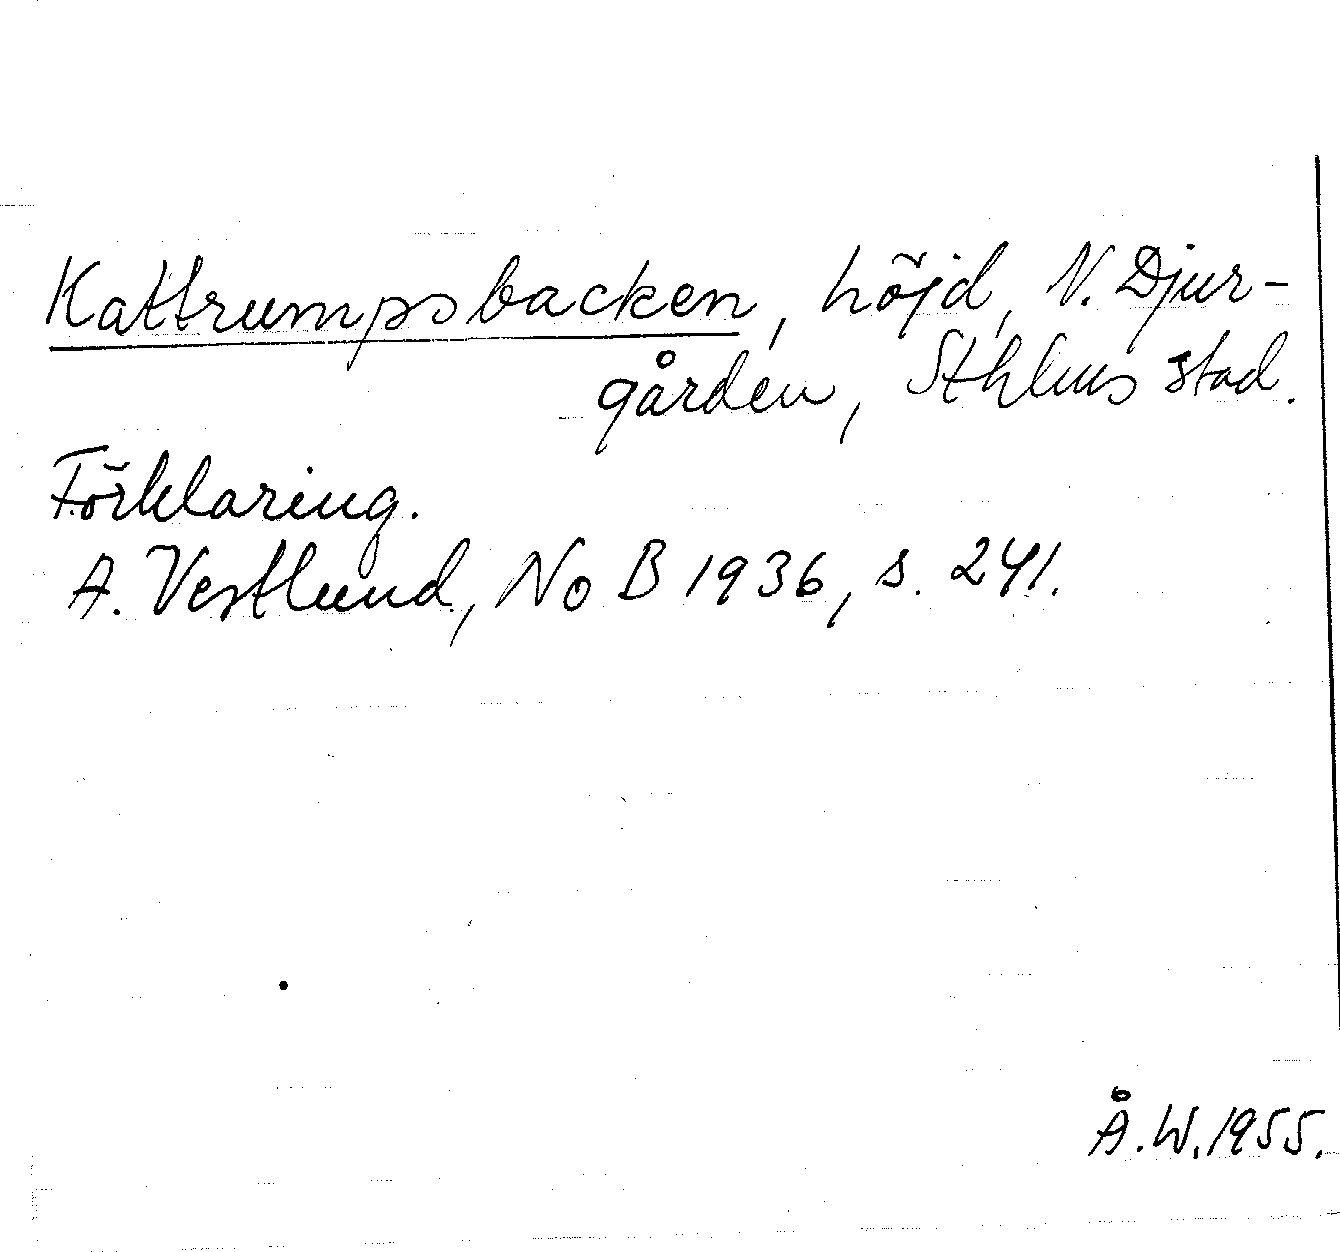 Kattrumpsbacken, höjd, N. Djur-
gården, Sthlms stad.
Förklaring.
A. Vestlund, No B 1936, s. 241.
Å. W. 1955.